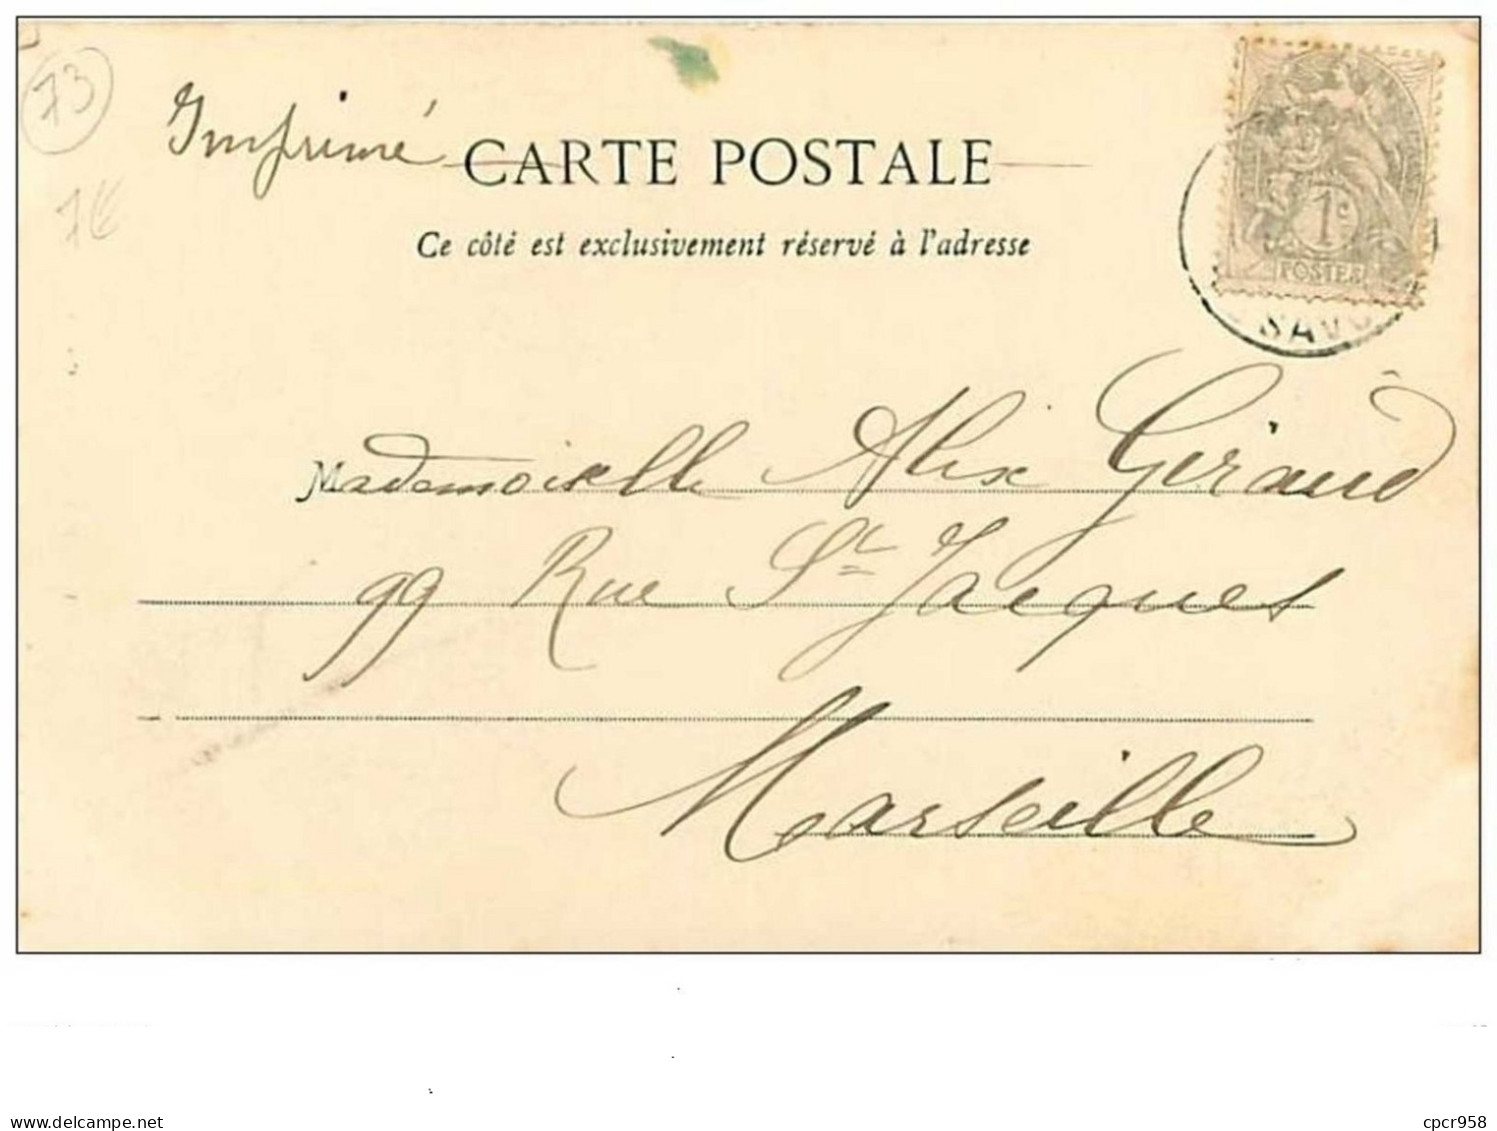 73
Imprimé
CARTE POSTALE
1€
Ce côté est exclusivement réservé à l'adresse
1c
POSTES
SAVO
Mademoiselle Alix Giraud
99 Rue St Jacques
Marseille
cpcr958